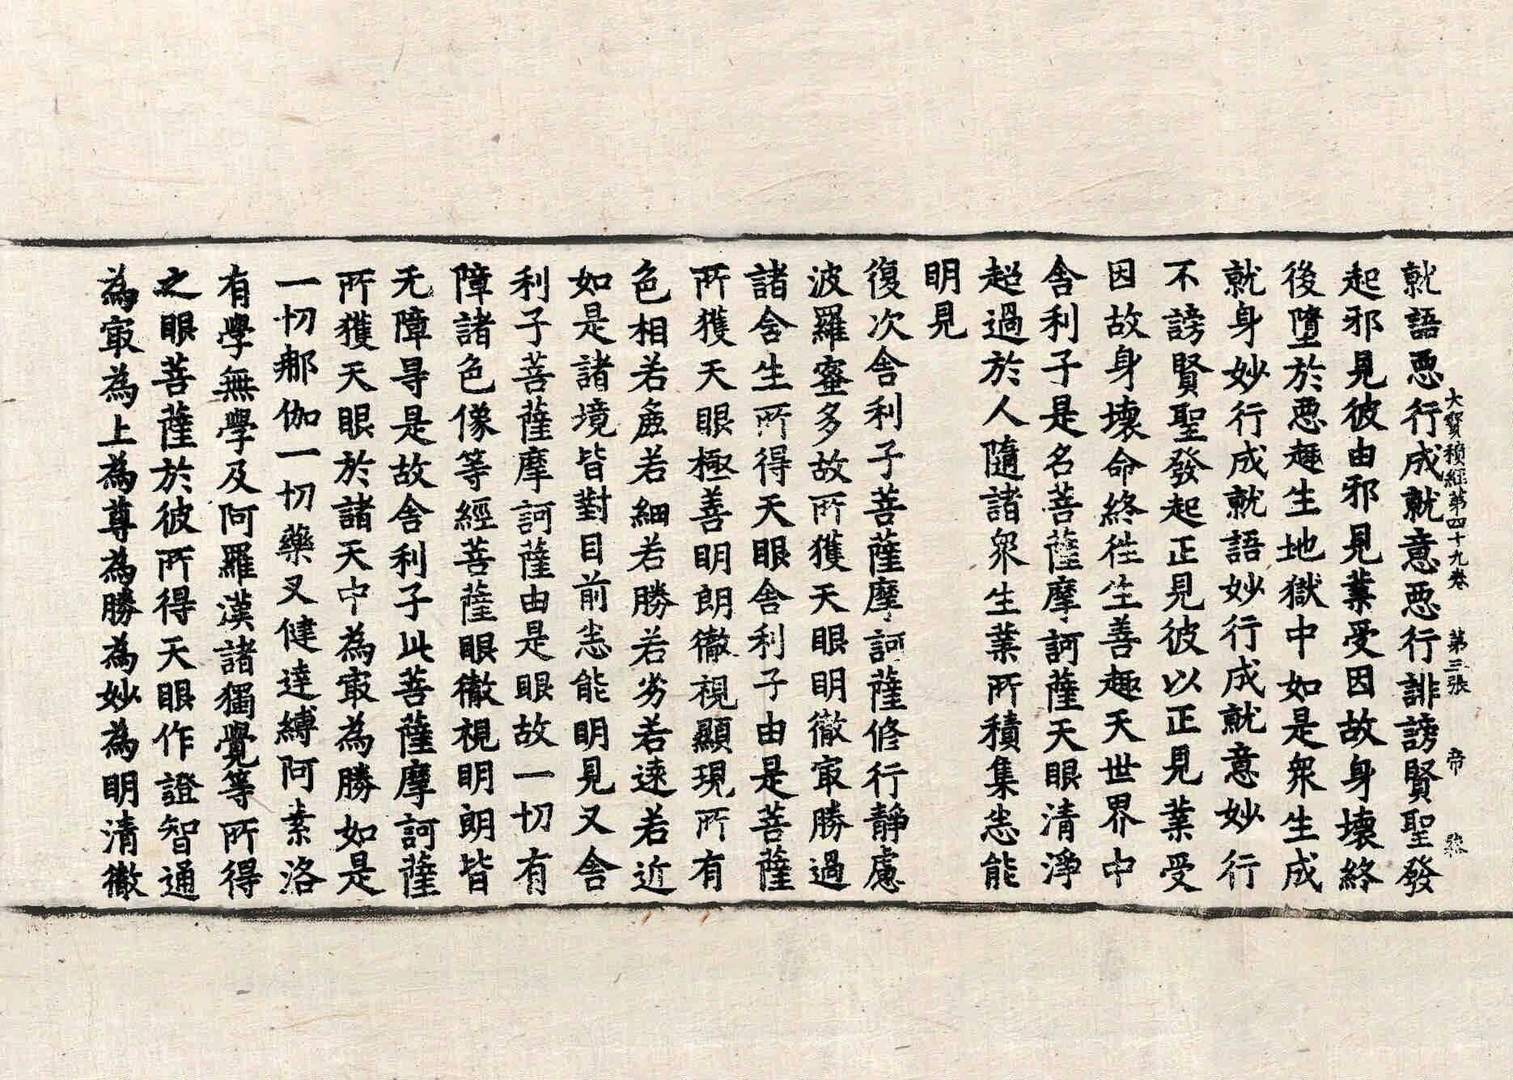 大寶積經第四十九卷　第三張　帝
就語惡行成就意惡行誹謗賢聖發
起邪見彼由邪見業受因故身壞終
後墮於惡趣生地獄中如是衆生成
就身妙行成就語妙行成就意妙行
不謗賢聖發起正見彼以正見業受
因故身壞命終往生善趣天世界中
舍利子是名菩薩摩訶薩天眼清淨
超過於人隨諸衆生業所積集悉能
明見
復次舍利子菩薩摩訶薩修行靜慮
波羅蜜多故所獲天眼明徹㝡勝過
諸含生所得天眼舍利子由是菩薩
所獲天眼極善明朗徹視顯現所有
色相若麁若細若勝若劣若遠若近
如是諸境皆對目前悉能明見又舍
利子菩薩摩訶薩由是眼故一切有
障諸色像等經菩薩眼徹視明朗皆
无障㝵是故舍利子此菩薩摩訶薩
所獲天眼於諸天中為㝡為勝如是
一切那伽一切藥叉健達縛阿素洛
有學無學及阿羅漢諸獨覺等所得
之眼菩薩於彼所得天眼作證智通
為㝡為上為尊為勝為妙為明清徹